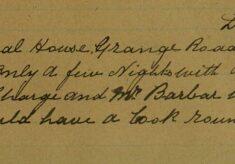 al House, Grange Road
Only a few Nights with
Charge and Mr. Barbar
uld have a look roun